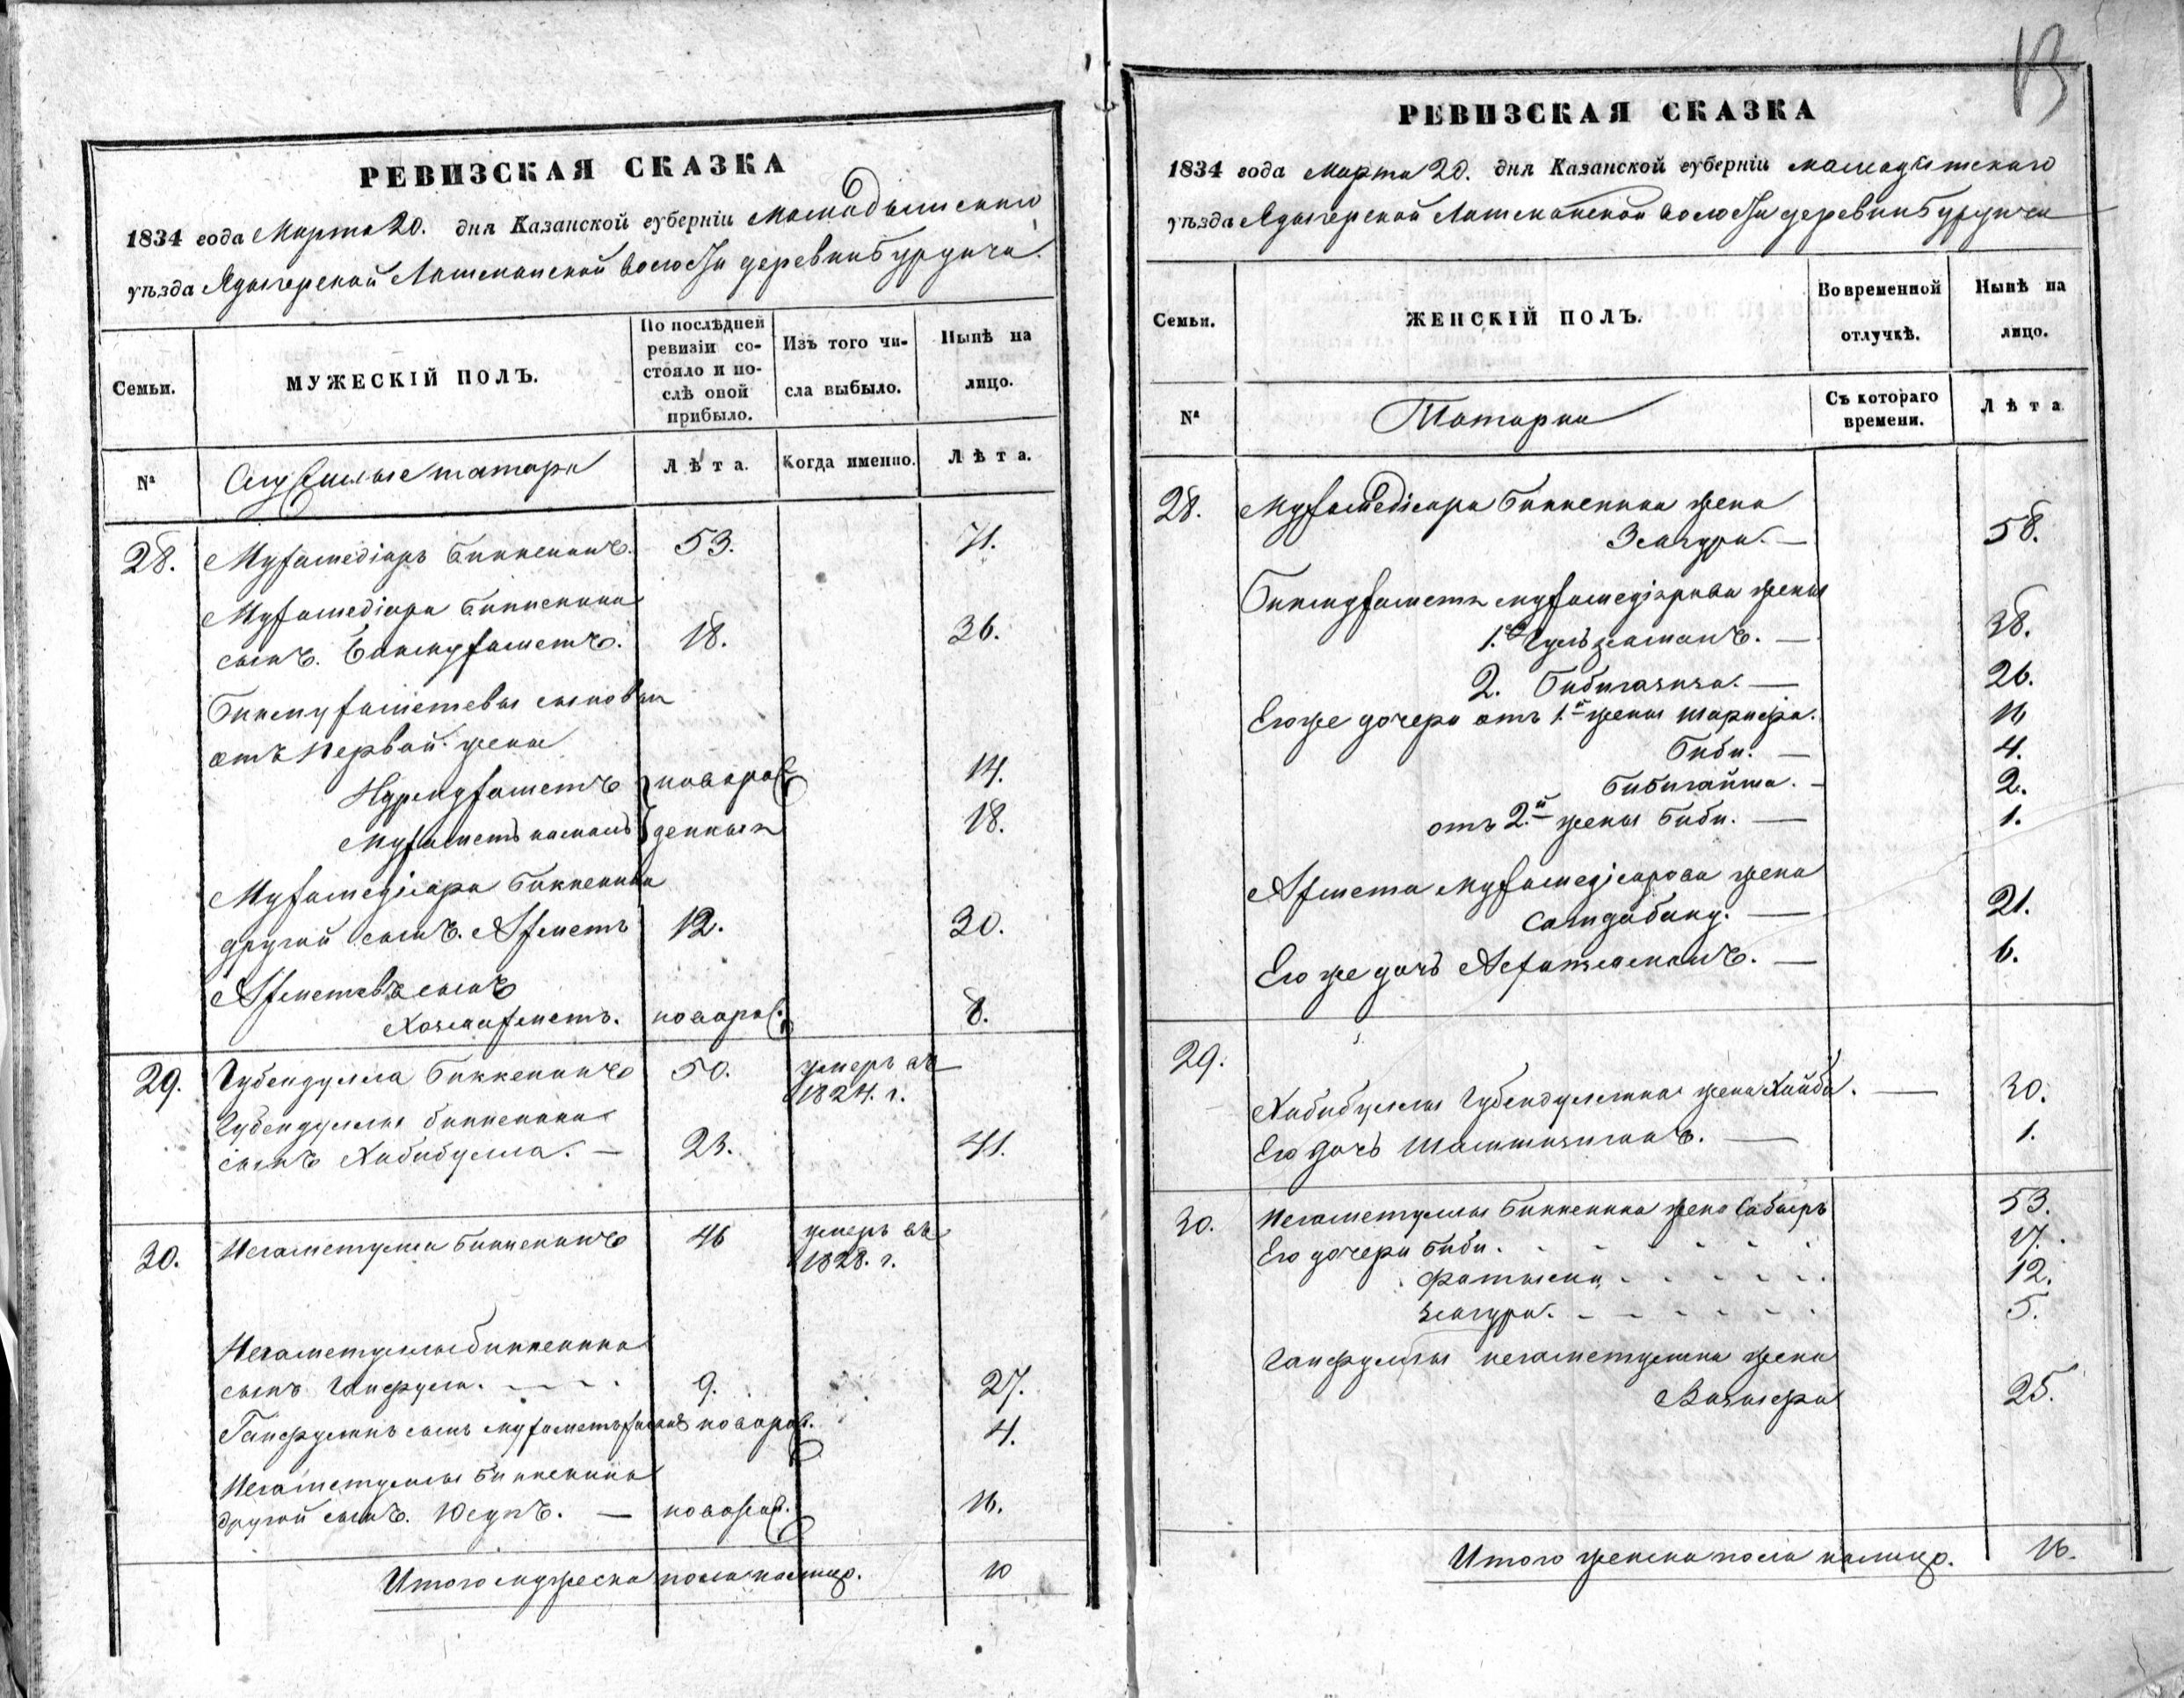 РЕВИЗСКАЯ СКАЗКА
1834 года Марта 20. дня Казанской губерніи Мамадышскаго
уѣзда Ядыгерской Лашманской волости деревни Бурдучи
Семьи.
МУЖЕСКІЙ ПОЛЪ.
По послѣдней ревизіи со-
стояло и по-
слѣ оной
прибыло.
Изъ того чи-
сла выбыло.
Нынѣ на
лицо.
№
Служилые татары
Лѣта.
Когда именно.
Лѣта.
28. Мухамедіаръ Биккенинъ. 53. 71.
Мухамедіара Биккенина
сынъ. Бикмухаметъ. 18. 36.
Бикмухаметевы сыновья
отъ первой жены
Нурмухаметъ новорож 14.
Мухаметъ денныя 18.
Мухамедіара Биккенина
другой сынъ. Ахметъ 12. 30.
Ахметевъ сынъ
Хозяахметъ. новорож. 8.
29. Губейдулла Биккенинъ 50. умеръ въ
1824. г.
Губейдуллы Биккенина
сынъ Хабибулла. — 23. 41.
30. Негаметулла Биккенинъ 46 умеръ въ
1828. г.
Негаметуллы Биккенина
сынъ Гайфулла. 9. 27.
Гайфуллинъ сынъ новорож. 4.
Негаметуллы Биккенина
другой сынъ. Юсупъ. — новорож. 16.
Итого мужеска пола налицо. 10
13
РЕВИЗСКАЯ СКАЗКА
1834 года Марта 20. дня Казанской губерніи Мамадышскаго
уѣзда Ядыгерской Лашманской волости деревни Бурдучи
Семьи.
ЖЕНСКІЙ ПОЛЪ.
Во временной
отлучкѣ.
Нынѣ на
лицо.
№
Татарки
Съ котораго
времени.
Лѣта
28. Мухамедіара Биккенина жена
Зюгура. — 58.
Бикмухаметя Мухамедіярова жены
1.я Гульзаманъ. — 38.
2. Бибигазиза. — 26.
Его же дочери отъ 1.й жены 11
Биби. — 4.
Бибигайша. - 2.
отъ 2.й жены Биби. — 1.
Ахмета Мухамедіярова жена
Сагидабану. — 21.
Его же дочь — 6.
29.
Хабибуллы Губейдуллина жена Хайба. — 30.
Его дочь — 1.
30. Негаметуллы Биккенина жена 53.
Его дочери Биби. 17.
12.
Зюгура. 5.
Гайфуллы Негаметуллина жена
25.
Итого женска пола налицо. 16.